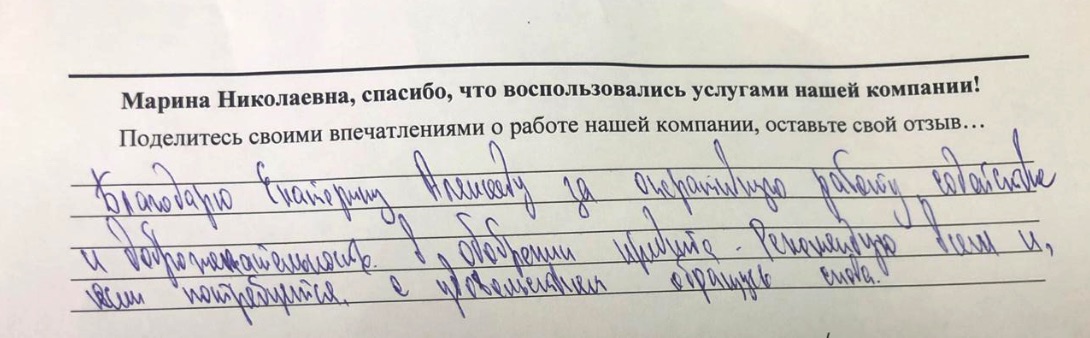 Марина Николаевна, спасибо, что воспользовались услугами нашей компании!
Поделитесь своими впечатлениями о работе нашей компании, оставьте свой отзыв…
Благодарю Екатерину Алексееву за оперативную работу, содействие
и доброжелательность в одобрении кредита. Рекомендую всем и,
если потребуется, с удовольствием обращусь снова.